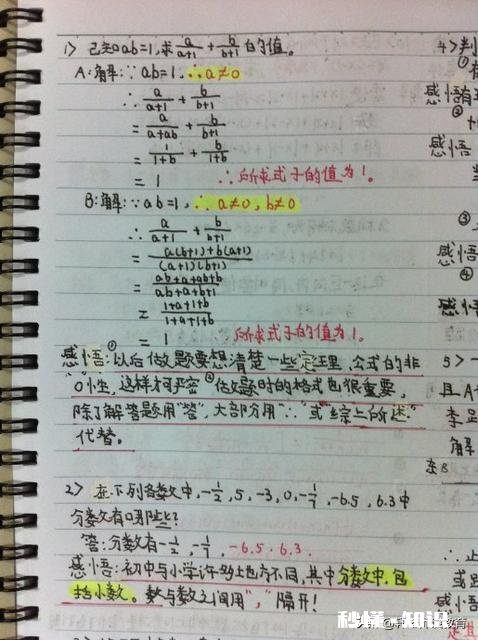 1> 已知ab=1,求a/(a+1)+b/(b+1)的值。
A:解:∵ab=1 ∴a≠0
∴a/(a+1)+b/(b+1)
=a/(a+ab)+b/(b+1)
=1/(1+b)+b/(1+b)
=1 ∴所求式子的值为1。
B:解:∵ab=1,∴a≠0,b≠0
∴a/(a+1)+b/(b+1)
=(a(b+1)+b(a+1))/((a+1)(b+1))
=(ab+a+ab+b)/(ab+a+b+1)
=(1+a+1+b)/(1+a+1+b)
=1 ∴所求式子的值为1。
感悟:①以后做题要想清楚一些定理,公式的非
"0"性,这样才严密②做题时的格式也很重要,
除了解答题用"答",大部分用"∴"或"综上所述"
代替。
2> 在下列各数中,-1/2,5,-3,0,-1/7,-6.5,6.3中
分数有哪些?
答:分数有-1/2,-1/7,-6.5,6.3.
感悟:初中与小学许多地方不同,其中分数中,包
括小数。数与数之间用","隔开!
4>判
①
感悟
②
感悟
③
感悟
④
感悟
5>一
且A
李
解
东8
∴
或
感悟
秒懂知识